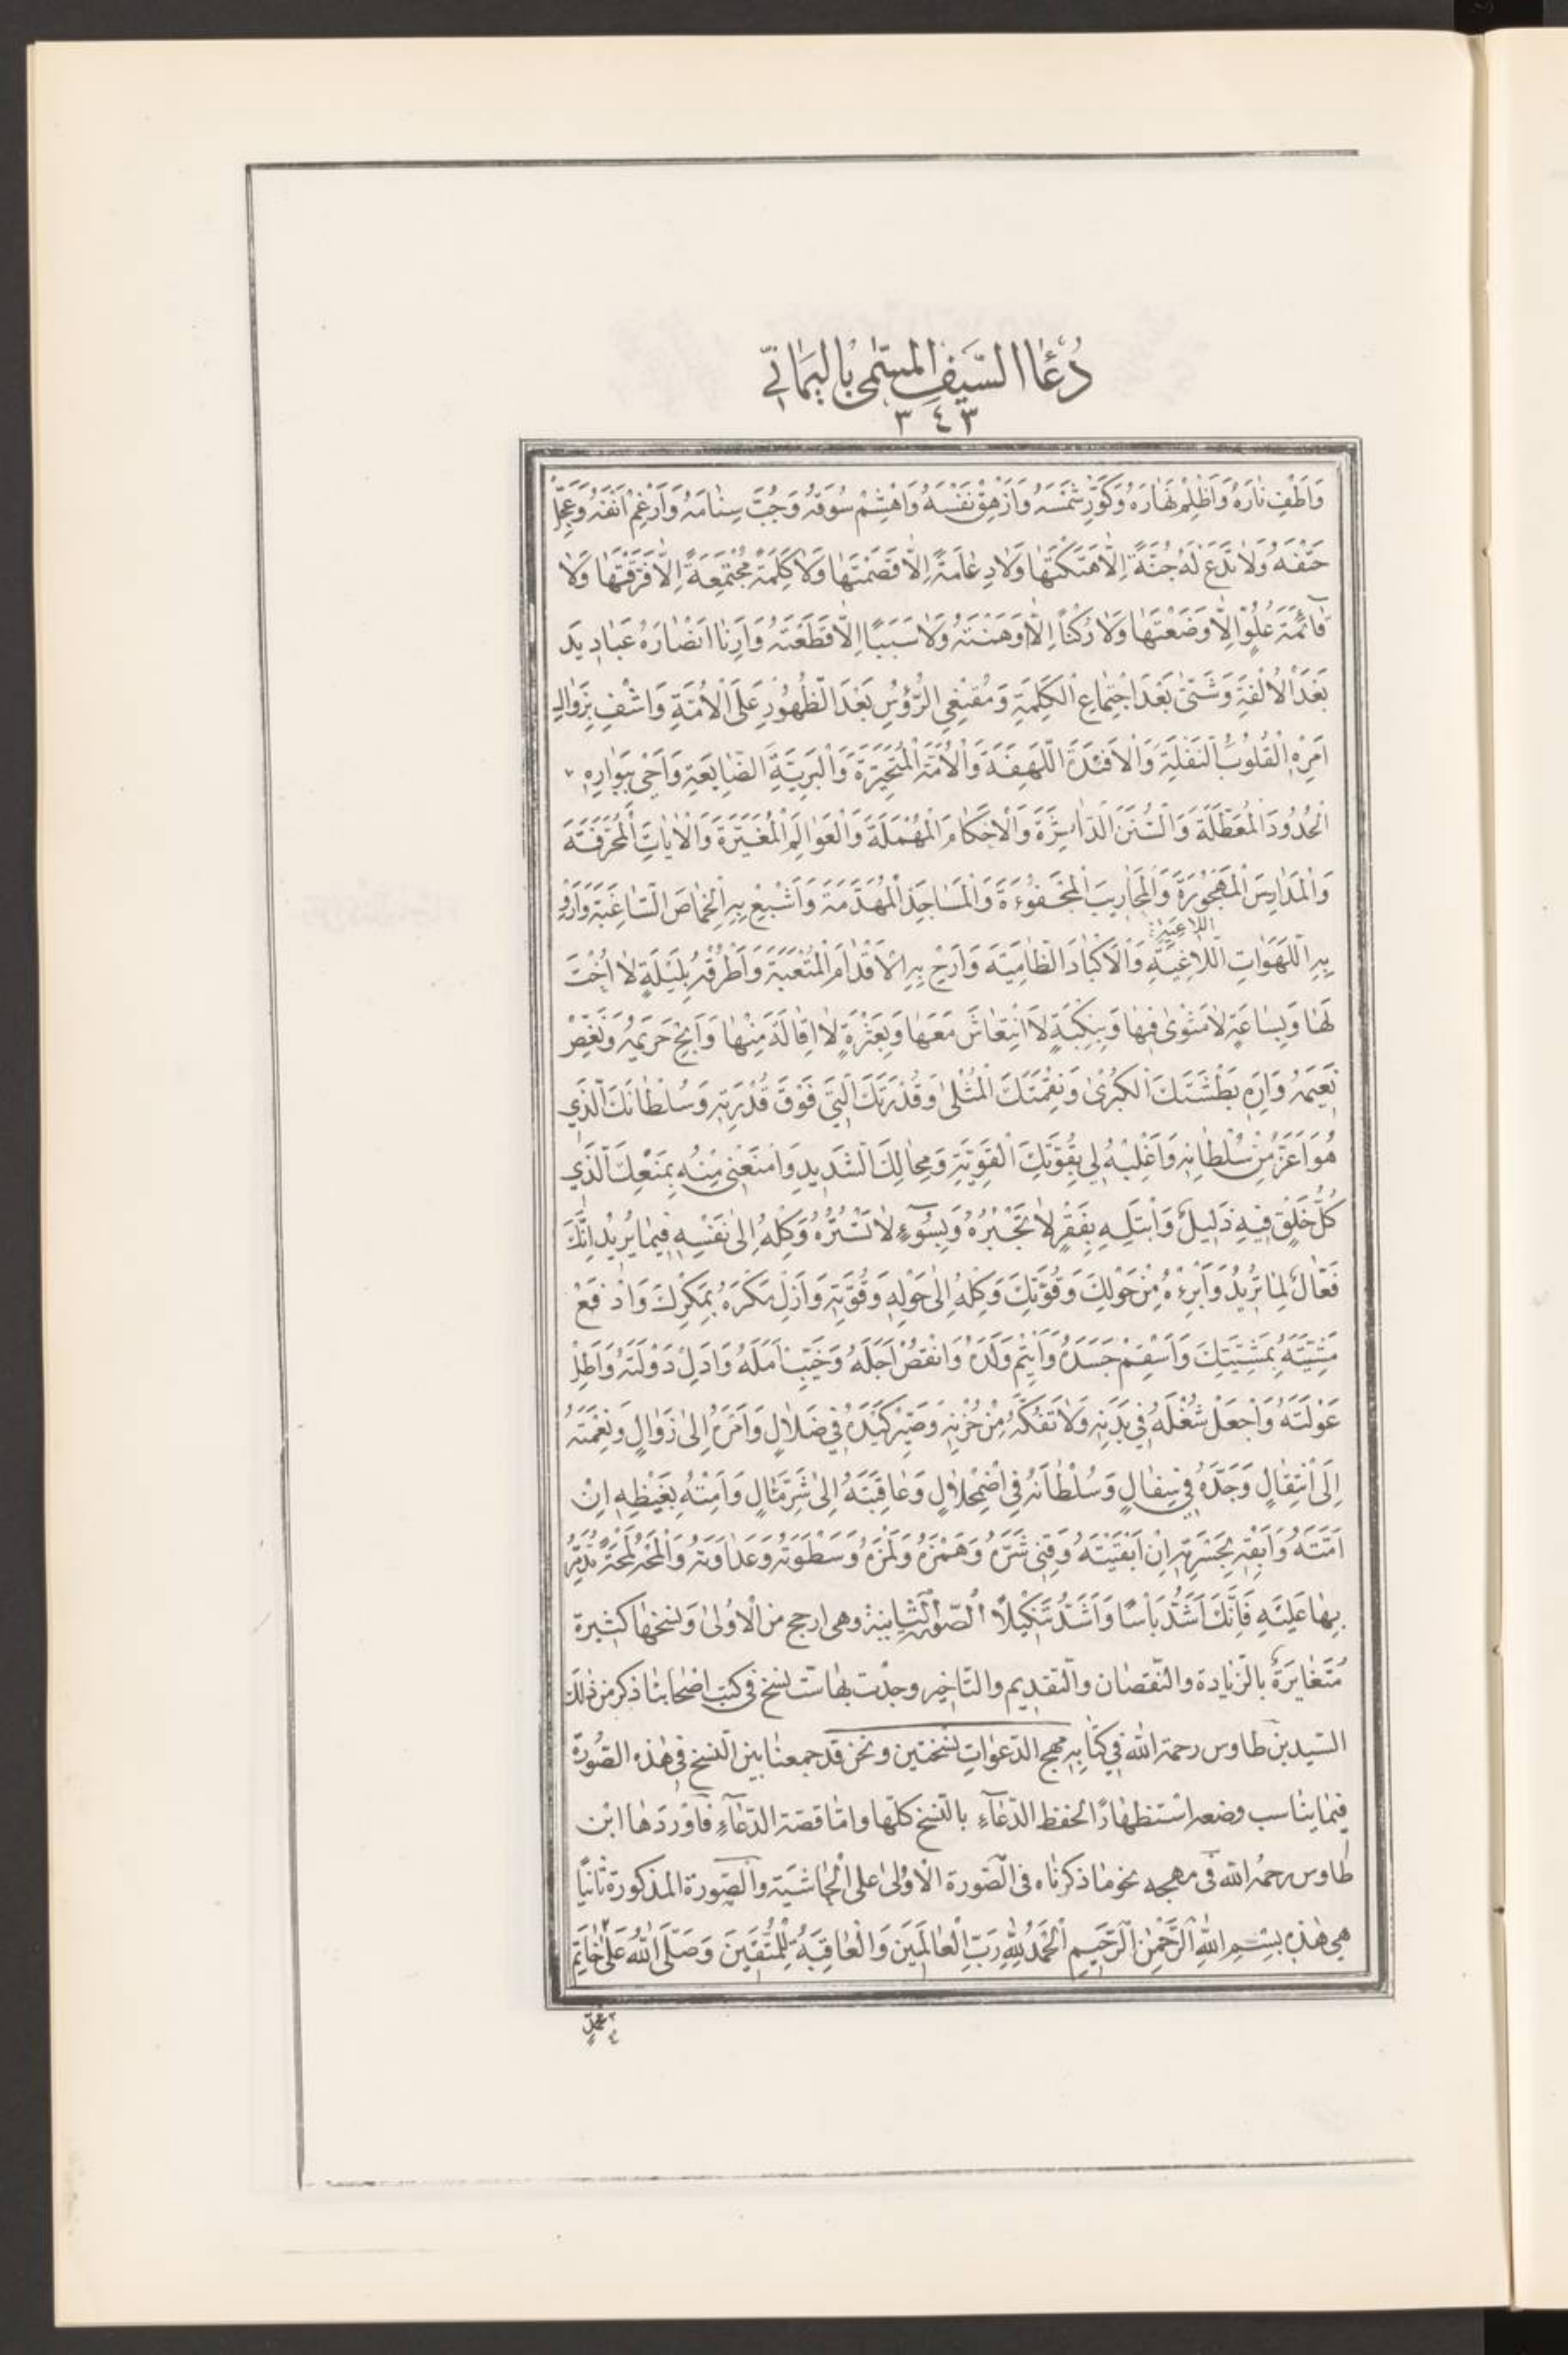 دُعَاالسَّيفِ المسَمّى بِاليَمَانّي
٣٤٣
وَاَطْفِ نارَهُ وَاَظْلِمْ نَهارَهُ وَكَوِّرْ شَمْسَهُ وَاَزْهِقْ نَفْسَهُ وَاهْشِمْ سُوقَهُ وَجُبَّ سِنامَهُ وَاَرْغِمْ اَنْفَهُ وَعَجِّلْ
حَتْفَهُ وَلاتَدَعْ لَهُ جُنَّةً اِلّاهَتَكْتَها وَلادِعامَةً اِلّا قَصَمْتَها وَلاكَلِمَةً مُجْتَمِعَةً اِلّافَرَّقْتَها وَلا
قآئِمَةَ عُلُوٍّ اِلّا وَضَعْتَها وَلا رُكْناً اِلّا وَهَنْتَهُ وَلا سَبَباً اِلّا قَطَعْتَهُ وَاَرِنا اَنْصارَهُ عَبادِيدَ
بَعْدَ الْاُلْفَةِ وَشَتّى بَعْدَ اجْتِماعِ الْكَلِمَةِ وَمُقْنِعِي الرُّؤُسِ بَعْدَ الظُّهُورِ عَلَى الْاُمَّةِ وَاشْفِ بِزَوالِ
اَمْرِهِ الْقُلُوبَ النَّغِلَةَ وَالْاَفْئِدَةَ اللَّهِفَةَ وَالْاُمَّةَ الْمُتَحَيِّرَةَ وَالْبَرِيَّةَ الضّايِعَةَ وَاَحْيِ بِبَوارِهِ
الْحُدُودَ الْمُعَطَّلَةَ وَالسُّنَنَ الدّاثِرَةَ وَالْاَحْكامَ الْمُهْمَلَةَ وَالْعَوالِمَ الْمُغَيَّرَةَ وَالْاياتِ الْمُحَرَّفَةَ
وَالْمَدارِسَ الْمَهْجُورَةَ وَالْمَحارِيبَ الْمَجْفُوَّةَ وَالْمَساجِدَ الْمُهَدَّمَةَ وَاَشْبِعْ بِهِ الْخِماصَ السّاغِبَةَ وَاَرْوِ
اللاغبة
بِهِ اللَّهَواتِ اللّاغِيَةَ وَالْاَكْبادَ الظّامِيَةَ وَاَرِحْ بِهِ الْاَقْدامَ الْمُتْعَبَةَ وَاَطْرُقْهُ بِلَيْلَةٍ لا اُخْتَ
لَها وَبِساعَةٍ لامَثْوى فِيها وَبِنِكْبَةٍ لاَ انْتِعاشَ مَعَها وَبِعَثْرَةٍ لا اِقالَةَ مِنْها وَاَبِحْ حَرِيمَهُ وَنَغِّصْ
نَعِيمَهُ وَاَرِهِ بَطْشَتَكَ الْكُبْرى وَنِقْمَتَكَ الْمُثْلى وَقُدْرَتَكَ الَّتِي فَوْقَ قُدْرَتِهِ وَسُلْطانَكَ الَّذِي
هُوَ اَعَزُّ مِنْ سُلْطانِهِ وَاغْلِبْهُ لِي بِقُوَّتِكَ الْقَوِيَّةِ وَمِحالِكَ الشَّدِيدِ وَامْنَعْنِي مِنْهُ بِمَنْعِكَ الَّذِي
كُلُّ خَلْقٍ فِيهِ ذَلِيلٌ وَابْتَلِهِ بِفَقْرٍ لا تَجْبُرُهُ وَبِسُوٓءٍ لا تَسْتُرُهُ وَكِلْهُ اِلى نَفْسِهِ فِيما يُرِيدُ اِنَّكَ
فَعّالٌ لِما تُرِيدُ وَاَبْرِءْهُ مِنْ حَوْلِكَ وَقُوَّتِكَ وَكِلْهُ اِلى حَوْلِهِ وَقُوَّتِهِ وَاَزِلْ مَكْرَهُ بِمَكْرِكَ وَادْفَعْ
مَشِيَّتَهُ بِمَشِيَّتِكَ وَاَسْقِمْ جَسَدَهُ وَاَيْتِمْ وَلَدَهُ وَانْقُصْ اَجَلَهُ وَخَيِّبْ اَمَلَهُ وَاَدِلْ دَوْلَتَهُ وَاَطِلْ
عَوْلَتَهُ وَاجْعَلْ شُغْلَهُ فِي بَدَنِهِ وَلا تَفُكَّهُ مِنْ حُزْنِهِ وَصَيِّرْ كَيْدَهُ فِي ضَلالٍ وَاَمْرَهُ اِلى زَوالٍ وَنِعْمَتَهُ
اِلَى انْتِقالٍ وَجَدَّهُ فِي سِفالٍ وَسُلْطانَهُ فِي اضْمِحْلالٍ وَعاقِبَتَهُ اِلى شَرِّ مَالٍ وَاَمِتْهُ بِغَيْظِهِ اِنْ
اَمَتَّهُ وَاَبْقِهِ بِحَسْرَتِهِ اِنْ اَبْقَيْتَهُ وَقِنِي شَرَّهُ وَهَمْزَهُ وَلَمْزَهُ وَسَطْوَتَهُ وَعَداوَتَهُ وَالْمَحْهُ لَمْحَةً تُدَمِّرُ
بِها عَلَيْهِ فَاِنَّكَ اَشَدُّ بَأْسًا وَاَشَدُّ تَنْكِيلاً الصّورة الثّانية وهى ارجح من الاُولى ونسخها كثيرة
مُتَغايَرةٌ بالزّيادة والنّقصان والتّقديم والتّاخير وجدْت بها ستّ نسخ فى كتب اصْحابنا ذكر من ذلك
السّيد بن طاوس رحمة اللّه فِي كتابِهِ مهج الدّعواتِ نسْختين ونحن قد جمعنا بين النّسخ فى هذه الصّورة
فيما يناسب وضعه اسْتظهارًا لحفظ الدّعآءِ بالنّسخ كلّها وامّا قصّة الدّعآءِ فاَوْردَها ابْن
طاوس رحمهُ اللّه فى مهجه نحو ما ذكرناه فى الصّورة الاُولى على الْحاشيَة والصّورة المذكورة ثانيًا
هِي هٰذِهِ بِسْمِ اللّهِ الرَّحْمٰنِ الرَّحِيمِ اَلْحَمْدُ لِلّهِ رَبِّ الْعالَمِينَ وَالْعاقِبَةُ لِلْمُتَّقِينَ وَصَلَّى اللّهُ عَلى خاتِمِ